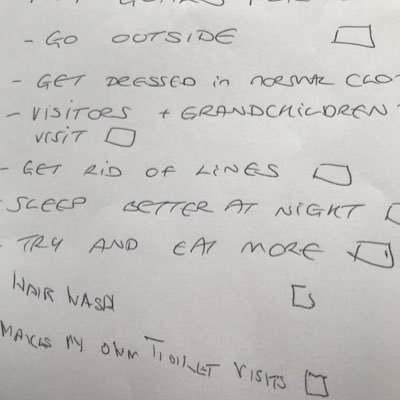 - GO OUTSIDE
- GET DRESSED in NORMAL CLO
- VISITORS + GRANDCHILDREN
VISIT
- GET RID OF LINES
- SLEEP BETTER AT NIGHT
- TRY AND EAT MORE
HAIR WASH
MAKES MY OWN TOILET VISITS